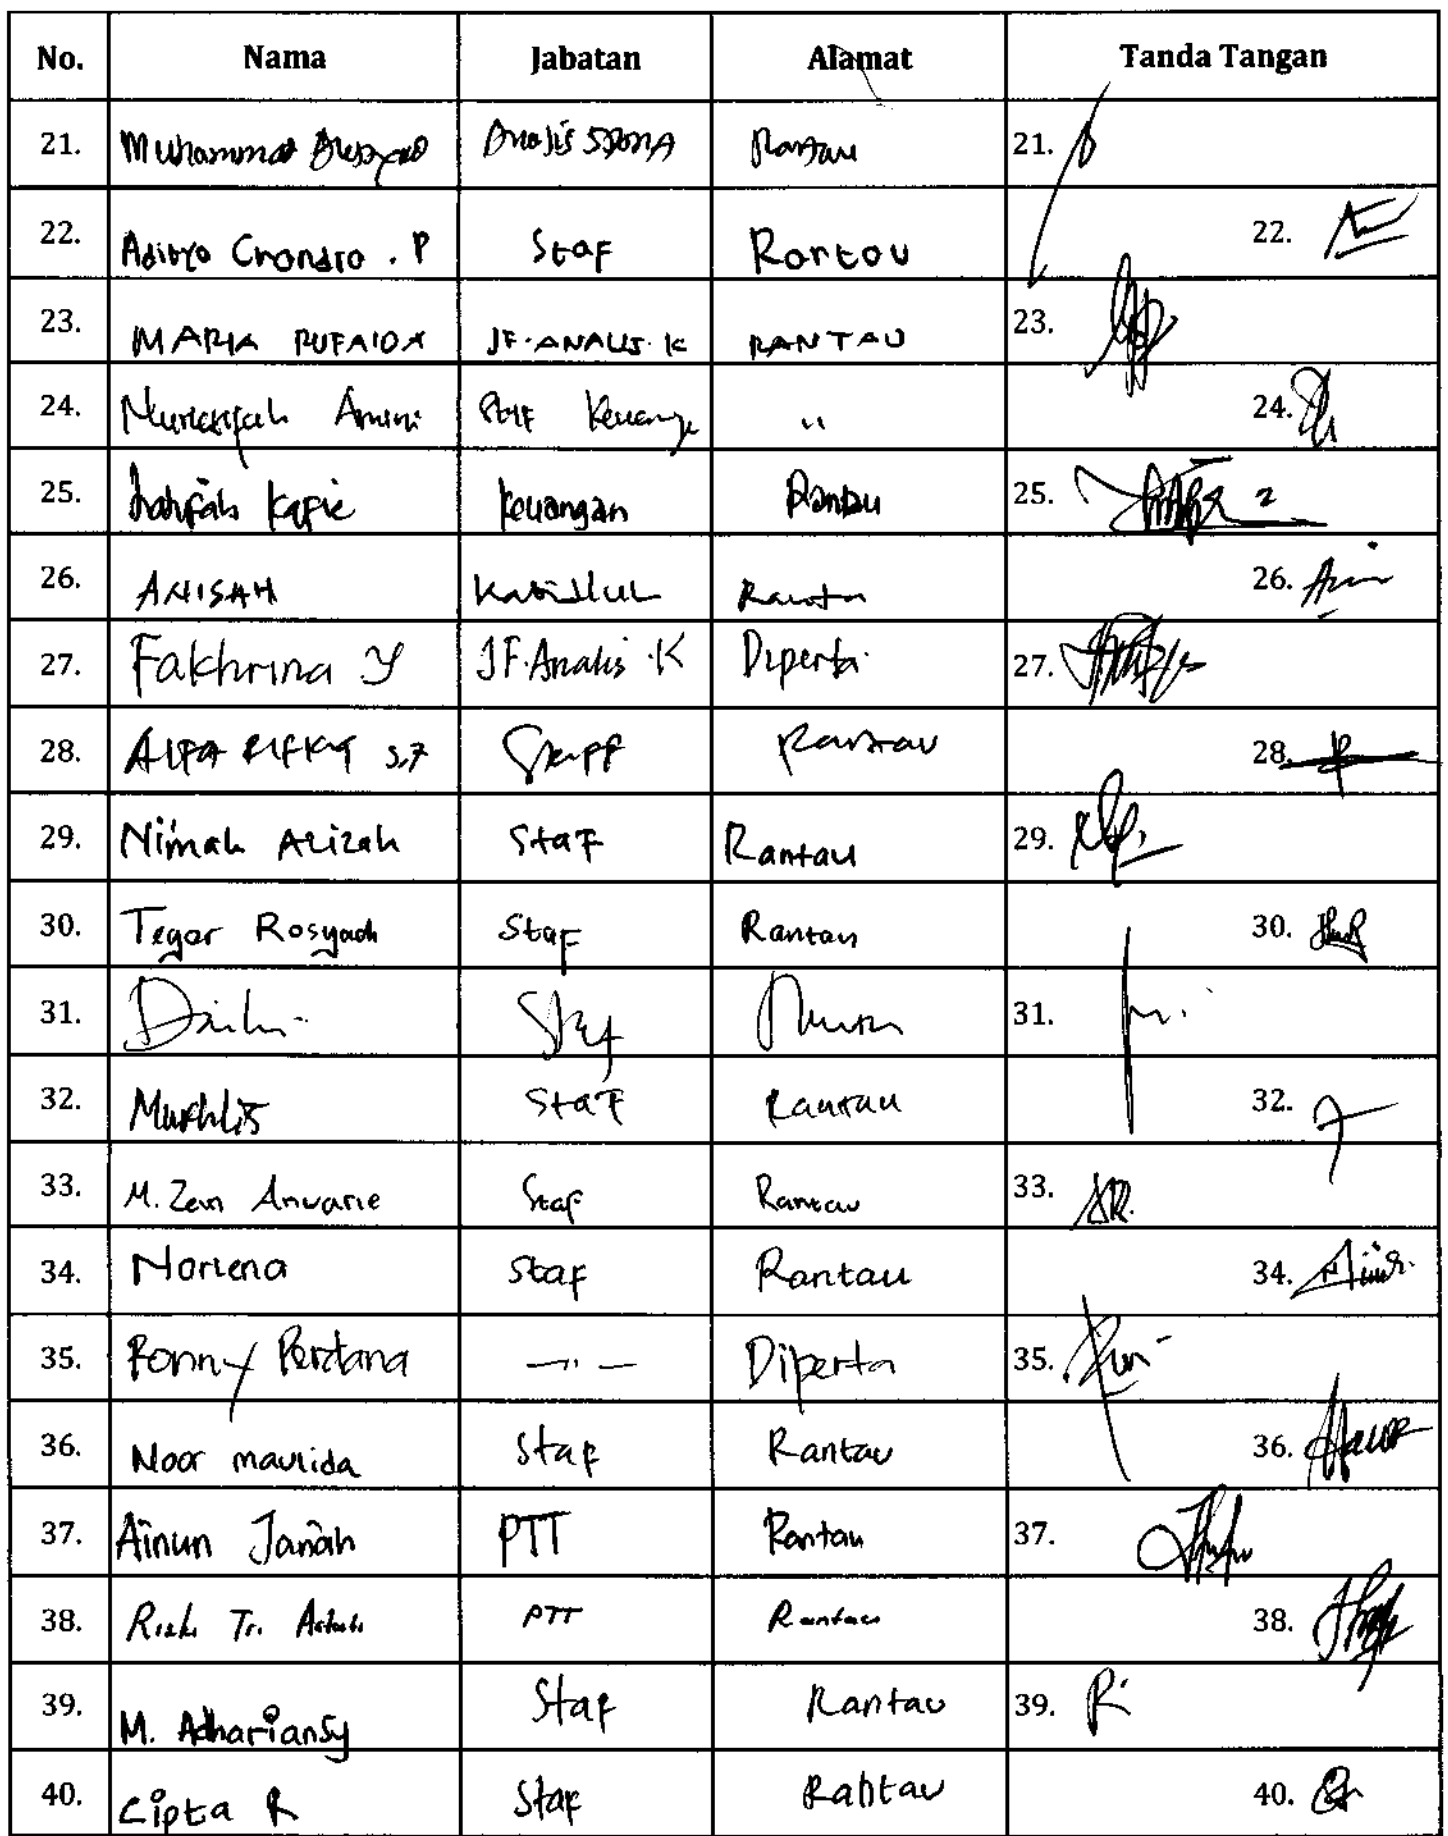 No. Nama Jabatan Alamat Tanda Tangan
21. Muhammad Analis Rantau 21.
22. Aditya Chandra . P Staf Rantau 22.
23. MARIA RUFAIDA JF. ANALIS. K RANTAU 23.
24. Amini Staf Keuangan " 24.
25. Keuangan Rantau 25.
26. ANISAH Rantau 26.
27. Fakhrina Y JF. Analis .K Diperta 27.
28. Staff Rantau 28.
29. Nimah Azizah Staf Rantau 29.
30. Tegar Rosyadi Staf Rantau 30.
31. Staf 31.
32. Mukhlis Staf Rantau 32.
33. M. Zein Anwarie Staf Rantau 33.
34. Norlena Staf Rantau 34.
35. Ronny Perdana — " — Diperta 35.
36. Noor maulida Staf Rantau 36.
37. Ainun Janah PTT Rantau 37.
38. Tri Astuti PTT Rantau 38.
39. M. Adhariansy Staf Rantau 39.
40. Cipta R Staf Rantau 40.